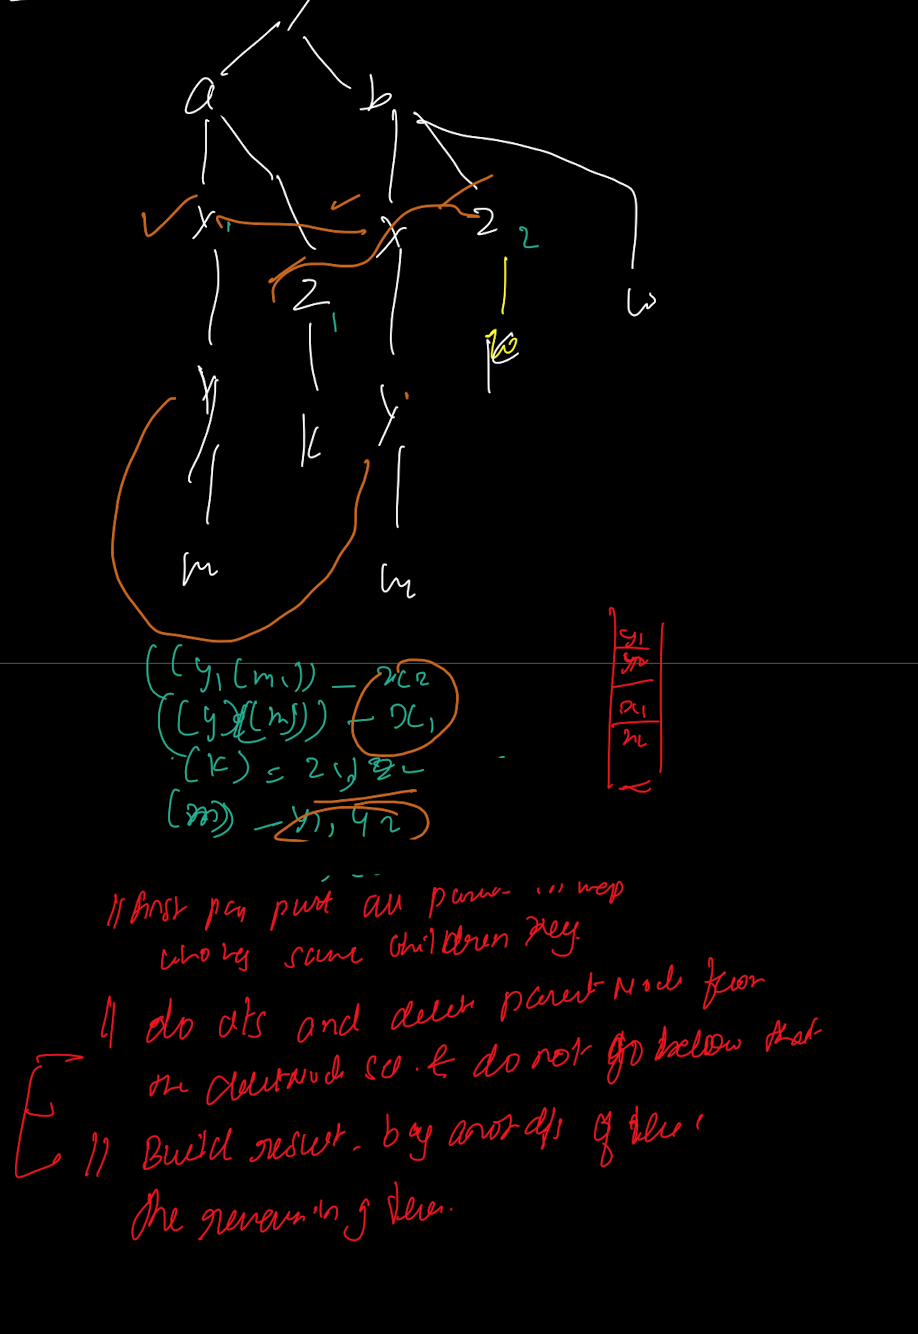 /
a b
x 1 x 2 2
z 1 w
y k y k
m m
((y1(m1)) - x2
((y)(m))) - x1
(k) = z1, z2
(m) - y1, y2
y1
y2
x1
x2
// first put all in map
whose same children key.
// do dfs and delete parent Node from
the deleteNode set & do not go below that
// Build result by another dfs of the
the remaining tree.